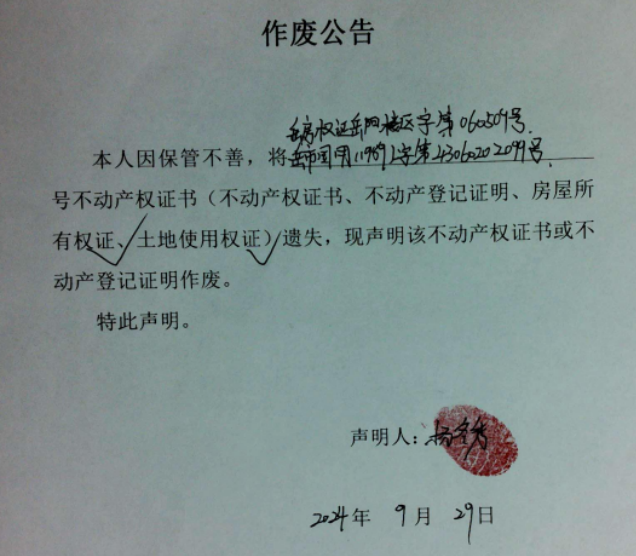 作废公告
岳房权证岳阳楼区字第060509号.
本人因保管不善，将岳市国用(1989)字第43060202099号.
号不动产权证书（不动产权证书、不动产登记证明、房屋所
有权证、土地使用权证）遗失，现声明该不动产权证书或不
动产登记证明作废。
特此声明。
声明人：杨冬秀
2024年 9月 29日